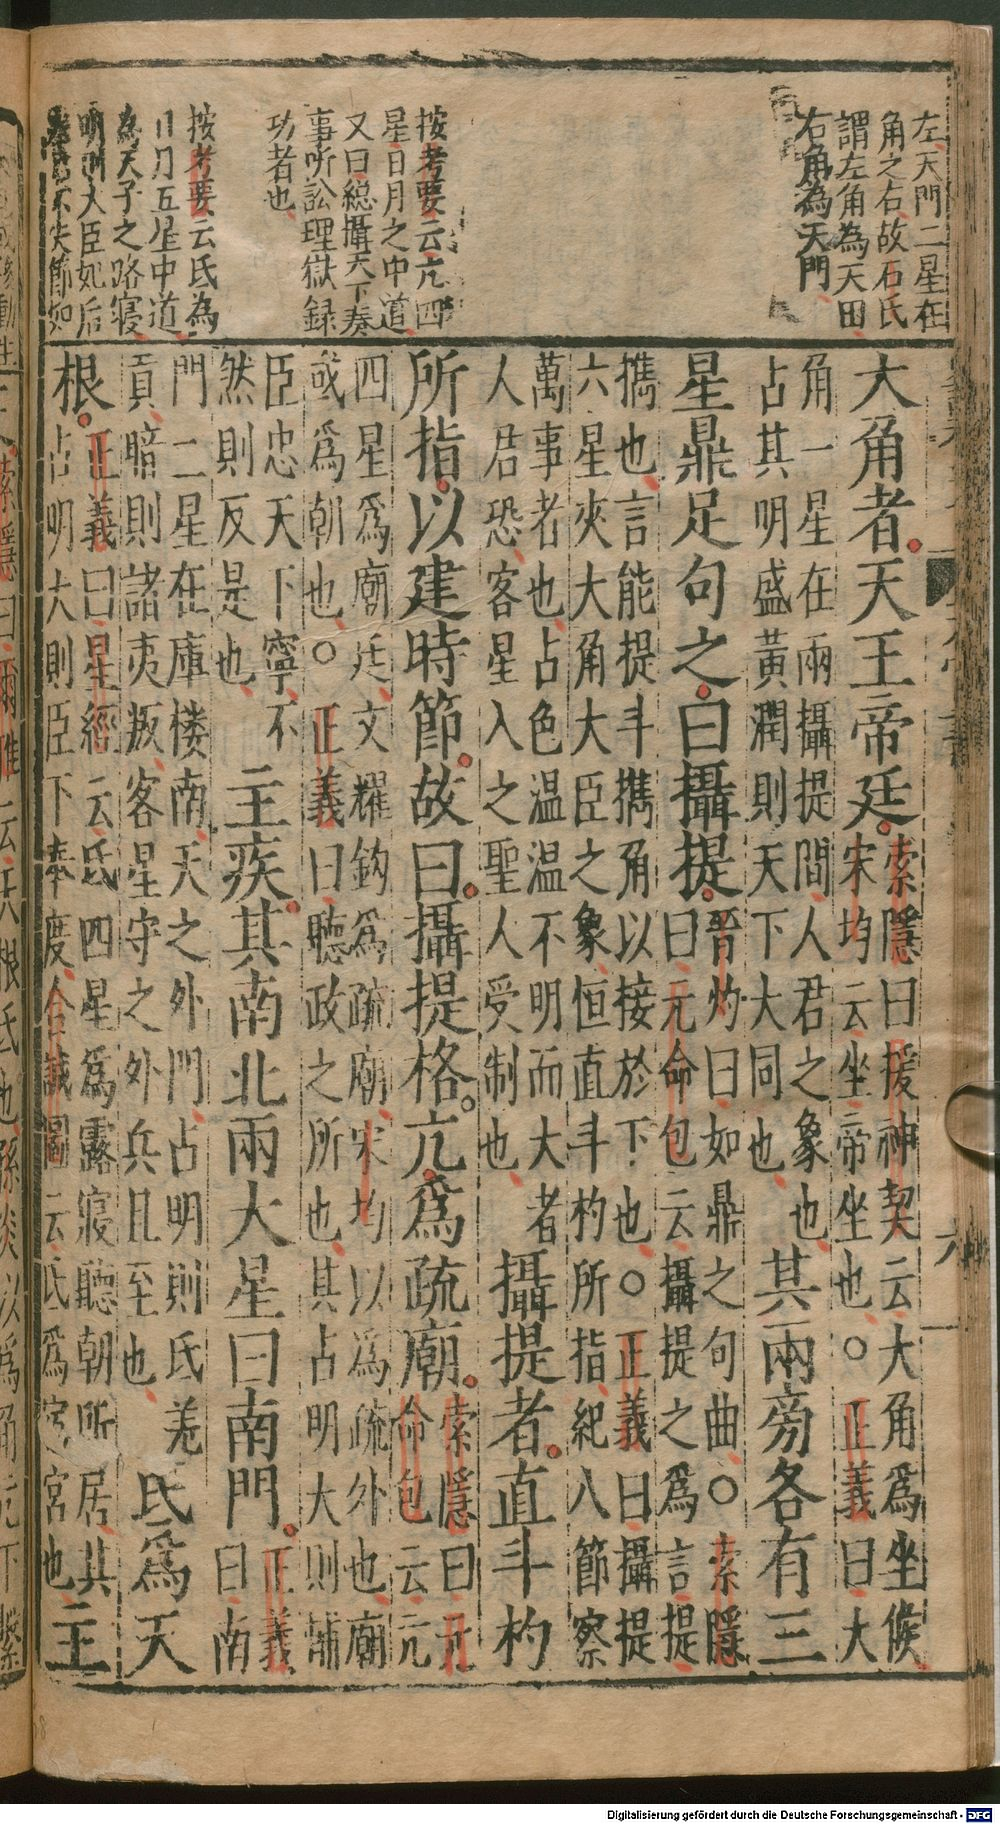 左天門二星在
角之右故石氏
謂左角為天田
右角為天門
按考要云亢四
星日月之中道
又曰総攝天下奏
事听訟理獄録
功者也
按考要云氐為
日月五星中道
為天子之路寝
明則大臣妃后
不失節如
大角者天王帝廷索隱曰援神契云大角爲坐候
宋均云坐帝坐也○正義曰大
角一星在兩攝提間人君之象也
占其明盛黄潤則天下大同也
其兩旁各有三
星鼎足句之曰攝提晉灼曰如鼎之句曲○索隱
曰元命包云攝提之為言提
攜也言能提斗攜角以接於下也○正義曰攝提
六星夾大角大臣之象恒直斗杓所指紀八節察
萬事者也占色温温不明而大者
人君恐客星入之聖人受制也
攝提者直斗杓
所指以建時節故曰攝提格亢爲疏廟索隱曰元
命包云亢
四星爲廟廷文耀鈎爲疏廟宋均以爲疏外也廟
或爲朝也○正義曰聽政之所也其占明大則輔
臣忠天下寧不
然則反是也
主疾其南北兩大星曰南門正義
曰南
門二星在庫楼南天之外門占明則氐羌
貢暗則諸夷叛客星守之外兵且至也
氐爲天
根正義曰星經云氐四星爲露寝聽朝所居其
占明大則臣下奉度合誠圖云氐爲宿宮也
主
六
Digitalisierung gefördert durch die Deutsche Forschungsgemeinschaft - DFG